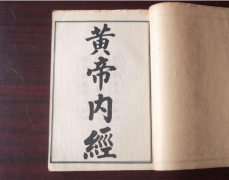 黄帝内經